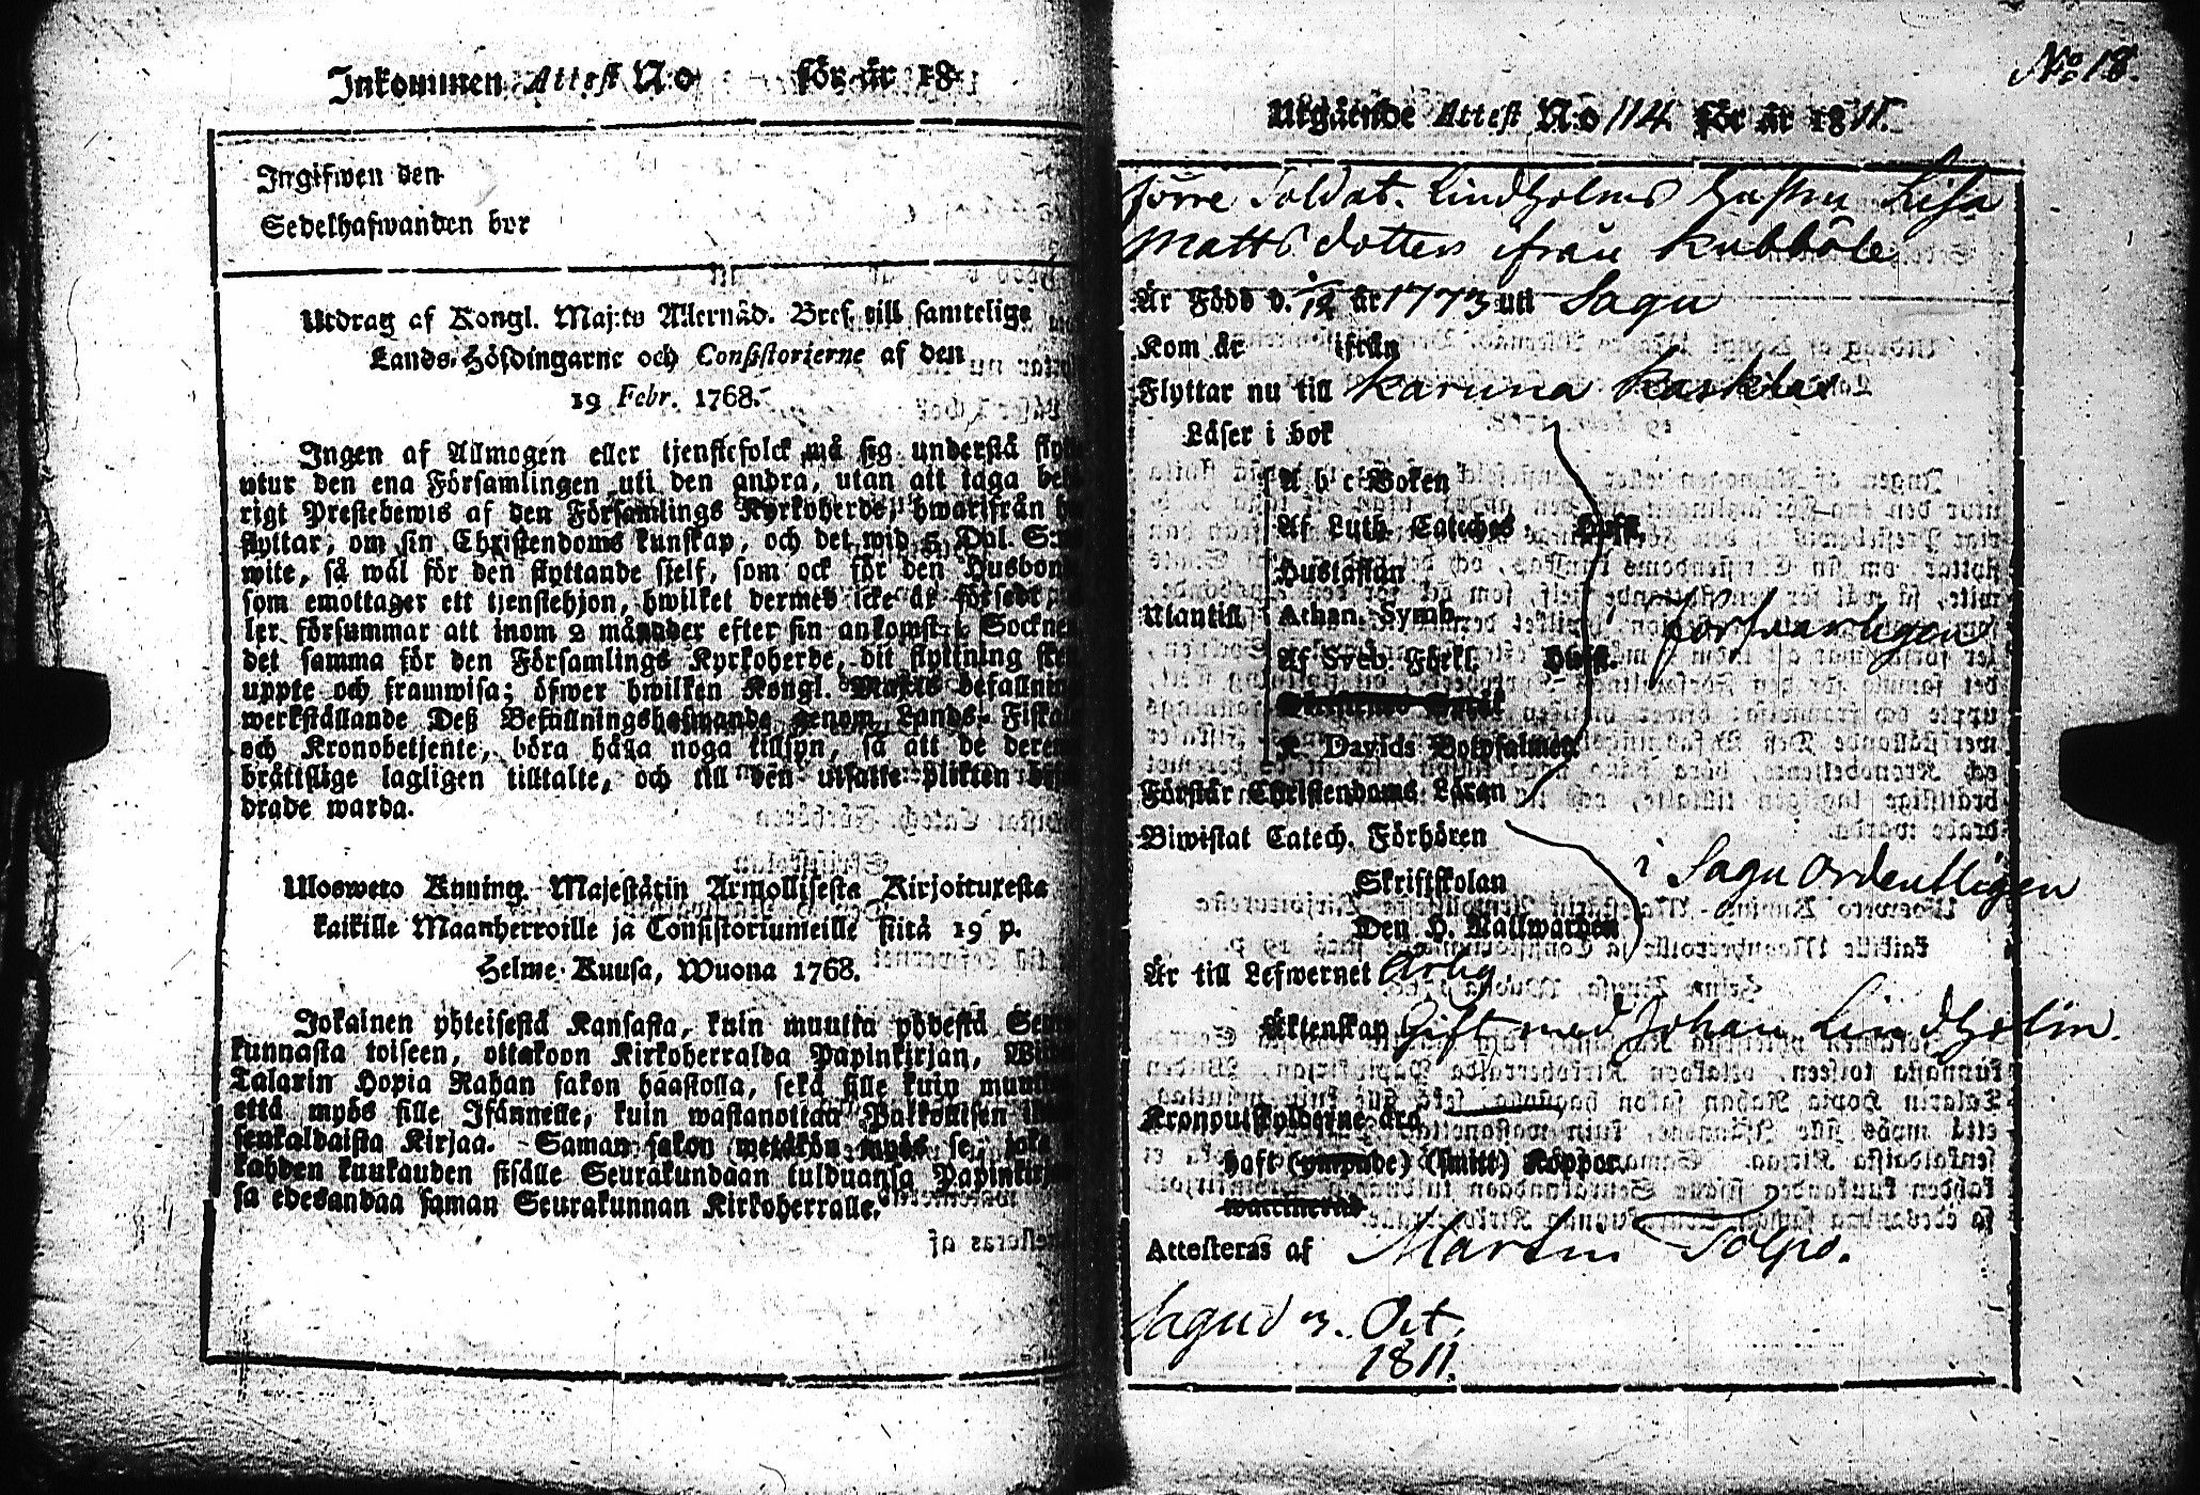 Inkommen Attest N:o för år 18
Ingifwen den
Sedelhafwanden bor
Utdrag af Kongl. Maj:ts Allernåd. Bref till samtelige
Lands-Höfdingarne och Consistorierne af den
19 Febr. 1768.
Ingen af Allmogen eller tjenstefolck må sig understå
utur den ena Församlingen uti den andra, utan att taga
rigt Prestebewis af den Församlings Kyrkoherde, hwarifrån
flyttar, om sin Christendoms kunskap, och det wid 5 Dal. S:
wite, så wäl för den flyttande sjelf, som ock för den
som emottager ett tjenstehjon, hwilket dermed icke är försedt,
ler försummar att inom 2 månader efter sin ankomst i
det samma för den Församlings Kyrkoherde, dit flyttning
uppte och framwisa; öfwer hwilken Kongl. Maj:ts
werkställande Deß Befallningshafwande genom Lands-
och Kronobetjente, böra hålla noga tillsyn, så att de
bråttslige lagligen tilltalte, och till den utsatte plikten
drade warda.
Ulosweto Kuning. Majestätin Armollisesta Kirjoituxesta
kaikille Maanherroille ja Consistoriumeille siitä 19 p.
Helme-Kuusa, Wuona 1768.
Jokainen yhteisestä Kansasta, kuin muutta yhdestä
kunnasta toiseen, ottakoon Kirkoherralda Papinkirjan,
Talarin Hopia Rahan sakon haastolla, sekä sille kuin
että myös sille Isännelle, kuin wastanottaa Palkollisen
senkaldaista Kirjaa. Saman sakon wetäkön myös se,
kahden kuukauden sisälle Seurakundaan tulduansa
sa edesandaa saman Seurakunnan Kirkoherralle.
No 18.
Utgående Attest N:o 114 för år 1811.
förre Soldat. Lindholms hustru Lisa
Matts dotter ifrån Kubböle
Är Född d. /12 år 1773 uti Sagu
Kom år ifrån
Flyttar nu till Karuna Kaskilax
Läser i bok
A b c Boken
Af Luth. Cateches
Hustaflan
Utantill Athan. Symb.
Af Sveb. Förkl.
K. Davids Botpsalmer
försvarligen
Förstår Christendoms Läran
Biwistat Catech. Förhören
Skriftskolan
Den H. Nattwarden
i Sagu Ordentligen
Är till Lefwernet ärlig
Äktenskap Gift med Johan Lindholm.
Kronoutskylderne äro
haft (ympade) (smitt) Koppor.
Attesteras af Martin Tolpo.
Sagu d 3. Oct.
1811.